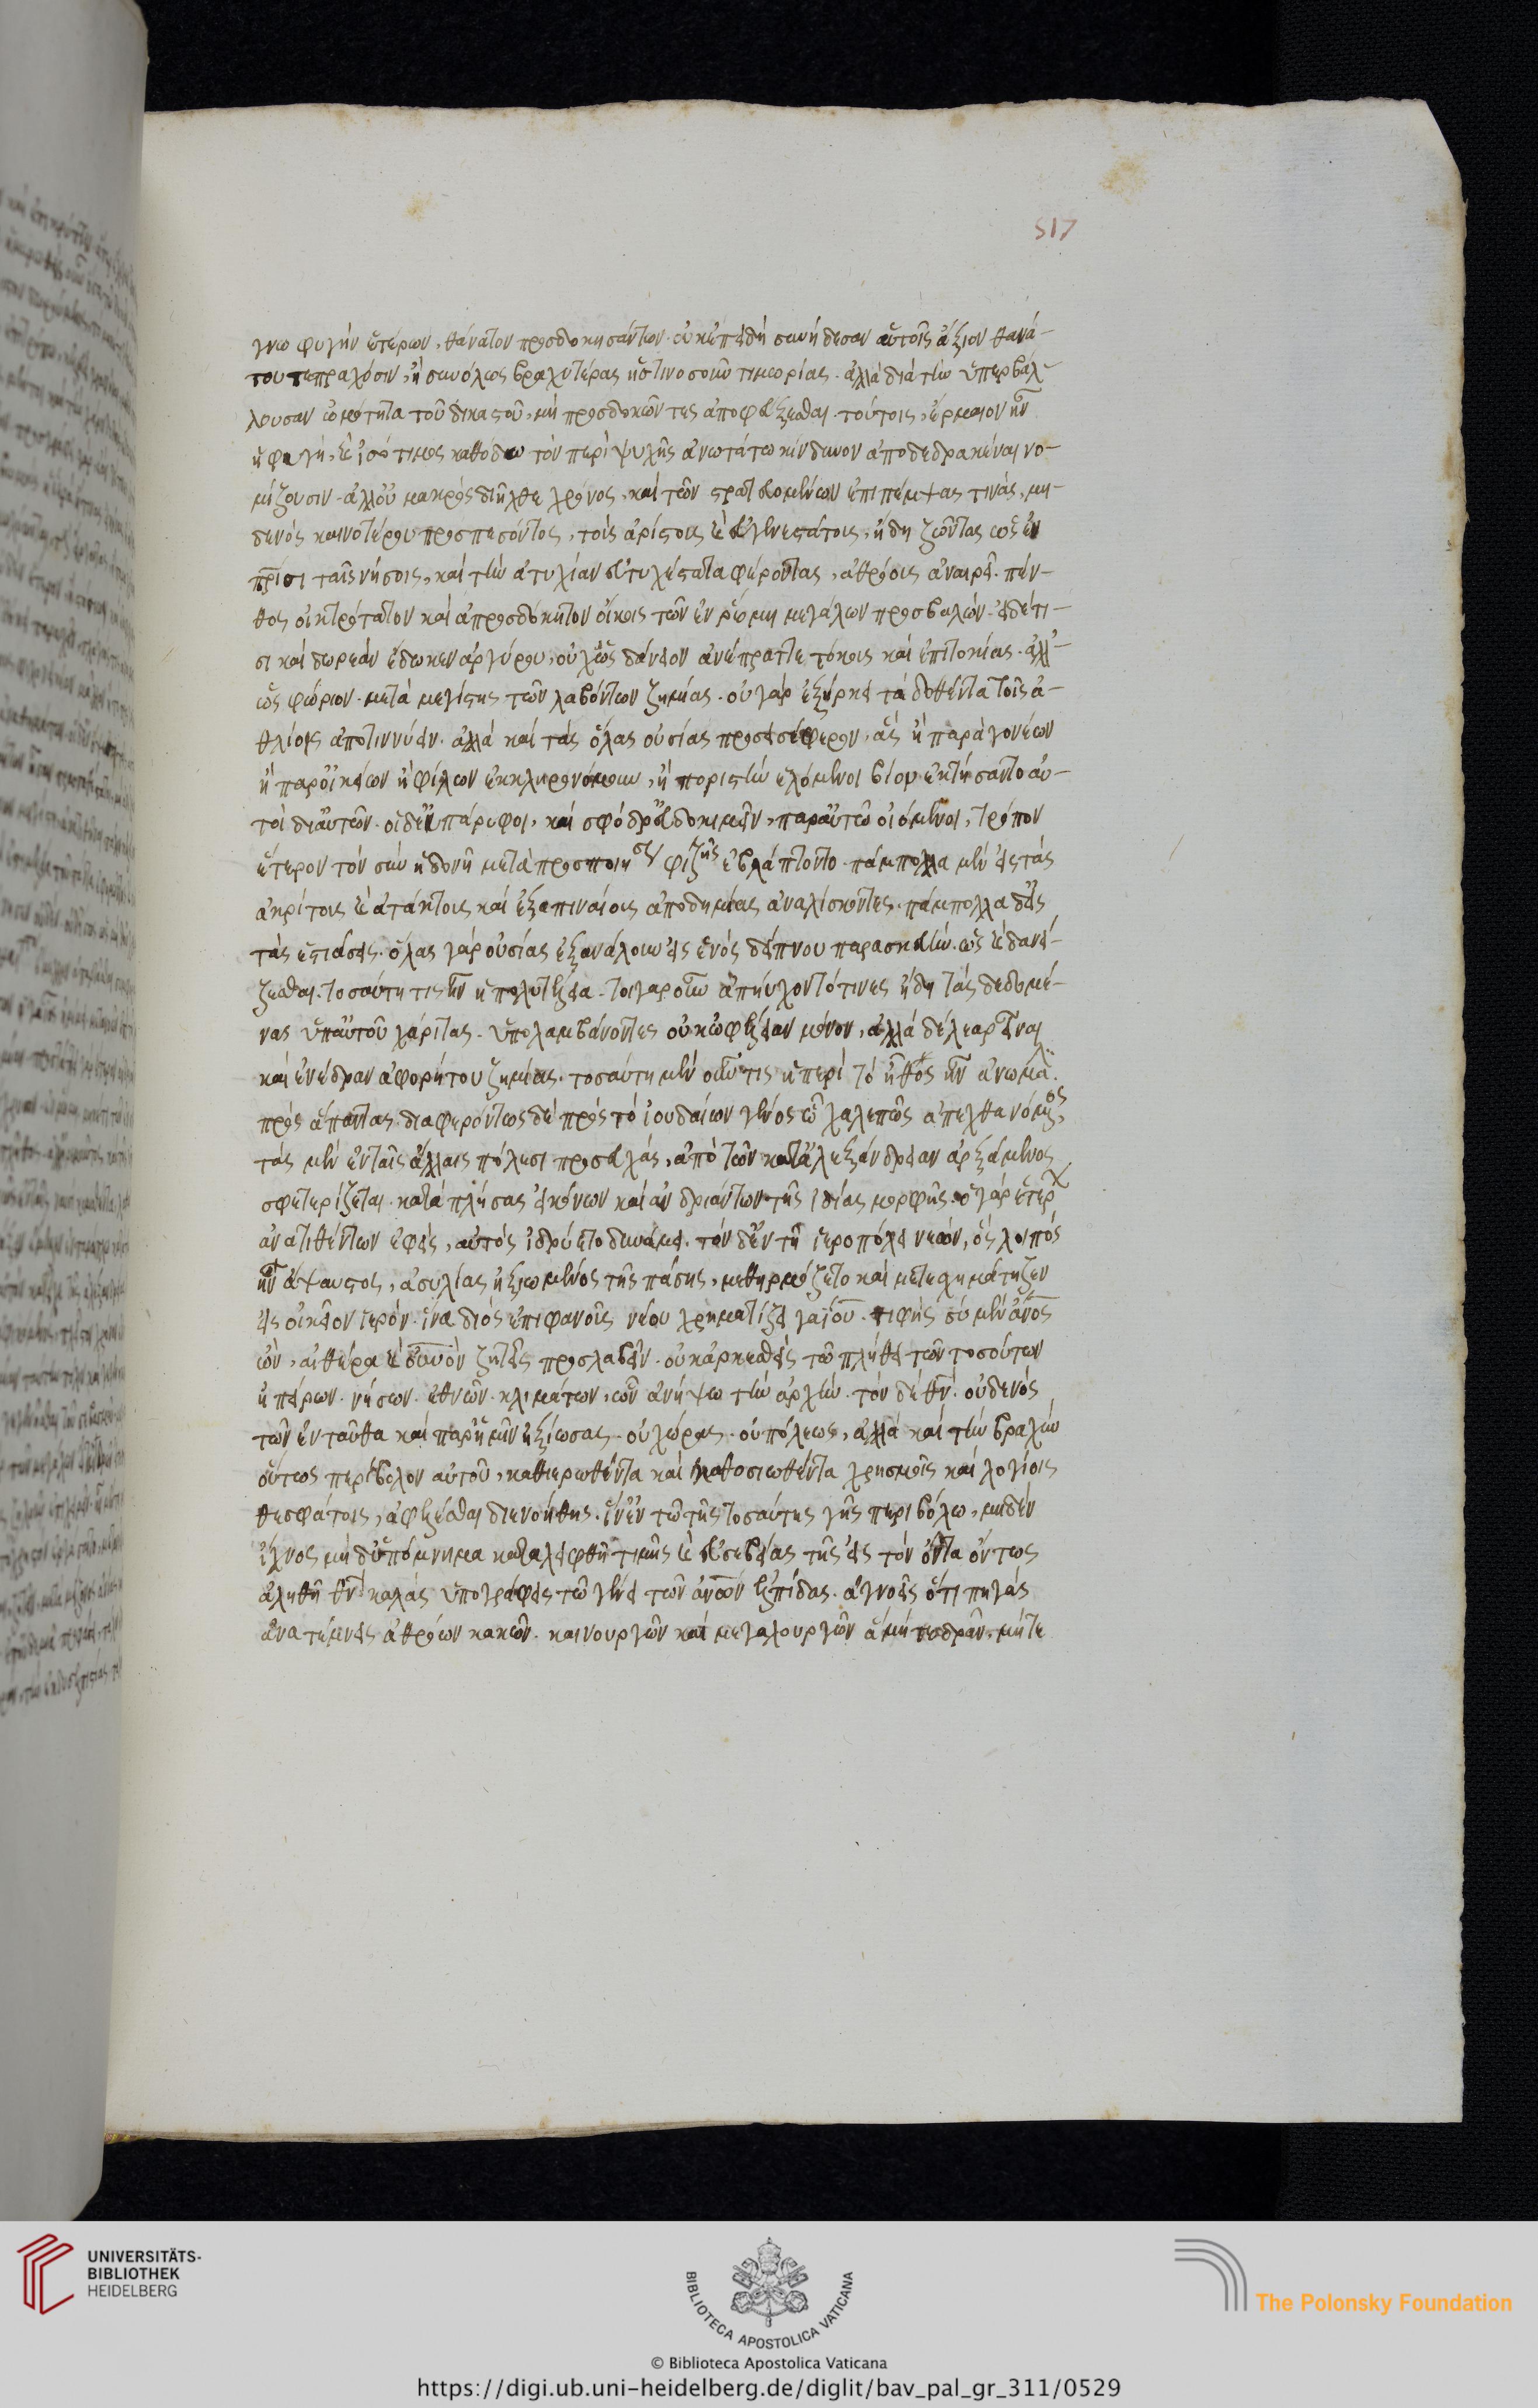 517
γνω φυγήν ἑτέρων, θάνατον προσδοκησάντων. οὐκ ἐπειδὴ συνῄδεσαν αὑτοῖς ἄξιον θανά-
του πεπραχόσιν, ἢ συνόλως βραχυτέρας ἡστινοσοῦν τιμωρίας. ἀλλὰ διὰ τὴν ὑπερβάλ-
λουσαν ὠμότητα τοῦ δικαστοῦ, μὴ προσδοκῶντες ἀποφεύξεσθαι. τούτοις, ἕρμαιον ἦν
ἡ φυγὴ, καὶ ἰσότιμος καθόδω τὸν περὶ ψυχῆς ἀνωτάτω κίνδυνον ἀποδεδρακέναι νο-
μίζουσιν. ἀλλ' οὐ μακρὸς διῆλθε χρόνος, καὶ τῶν στρατευομένων ἐπιπέμψας τινὰς, μη-
δενὸς καινοτέρου προσπεσόντος, τοὺς ἀρίστους καὶ εὐγενεστάτους, ἤδη ζῶντας ὡς ἐν
πρίσι ταῖς νήσοις, καὶ τὴν ἀτυχίαν εὐτυχέστατα φέροντας, ἀθρόους ἀναιρεῖ. πέν-
θος οἰκτρότατον καὶ ἀπροσδόκητον οἴκοις τῶν ἐν ῥώμη μεγάλων προσβαλών. εἰ δέ τι-
σι καὶ δωρεὰν ἔδωκεν ἀργύρου, οὐχ ὡς δάνειον ἀνέπραττε τόκους καὶ ἐπιτοκίας. ἀλλ'
ὡς φώριον. μετὰ μεγίστης τῶν λαβόντων ζημίας. οὐ γὰρ ἐξήρκει τὰ δοθέντα τοῖς ἀ-
θλίοις ἀποτιννύειν. ἀλλὰ καὶ τὰς ὅλας οὐσίας προσεισέφερον, ἃς ἢ παρὰ γονέων
ἢ παρ' οἰκείων ἢ φίλων ἐκκληρονόμουν, ἢ ποριστὴν ἑλόμενοι βίον ἐκτήσαντο αὐ-
τοὶ δι' αὑτῶν. οἱ δ' εὐπάρυφοι, καὶ σφόδρ' εὐδοκιμεῖν, παρ' αὐτῶ οἰόμενοι, τρόπον
ἕτερον τὸν σὺν ἡδονῆ μετὰ προσποιη φιζῆς ἐβλάπτοντο. πάμπολλα μὲν εἰς τὰς
ἀκρίτους καὶ ἀτάκτους καὶ ἐξαπιναίους ἀποδημίας ἀναλίσκοντες. πάμπολλα δ' εἰς
τὰς ἑστιάσεις. ὅλας γὰρ οὐσίας ἐξανάλουν εἰς ἑνὸς δείπνου παρασκευὴν. ὡς καὶ δανεί-
ζεσθαι. τοσαύτη τις ἦν ἡ πολυτέλεια. τοιγαροῦν ἀπηύχοντό τινες ἤδη τὰς δεδομέ-
νας ὑπ' αὐτοῦ χάριτας. ὑπολαμβάνοντες οὐκ ὠφέλειαν μόνον, ἀλλὰ δέλεαρ εἶναι
καὶ ἐνέδραν ἀφορήτου ζημίας. τοσαύτη μὲν οὖν τις ἡ περὶ τὸ ἦθος ἦν ἀνωμαλ
πρὸς ἅπαντας διαφερόντως δὲ πρὸς τὸ ἰουδαίων γένος ᾧ χαλεπῶς ἀπεχθανόμενος,
τὰς μὲν ἐν ταῖς ἄλλαις πόλεσι προσευχὰς, ἀπὸ τῶν κατ' ἀλεξάνδρειαν ἀρξάμενος
σφετερίζεται. καταπλήσας εἰκόνων καὶ ἀνδριάντων τῆς ἰδίας μορφῆς. ὁ γὰρ ἑτέρων
ἀνατιθέντων ἐφεὶς, αὐτὸς ἱδρύετο δυνάμει. τὸν δ' ἐν τῆ ἱεροπόλει νεών, ὃς λοιπὸς
ἦν ἄψαυστος, ἀσυλίας ἠξιωμένος τῆς πάσης, μεθηρμόζετο καὶ μετεσχημάτιζεν
εἰς οἰκεῖον ἱερόν. ἵνα διὸς ἐπιφανοῦς νέου χρηματίζη γαΐου. τί φής; σὺ μὲν ἄνος
ὢν, αἰθέρα καὶ οὐνὸν ζητεῖς προσλαβεῖν. οὐκ ἀρκεσθεὶς τῶ πλήθει τῶν τοσούτων
ἠπείρων. νήσων. ἐθνῶν. κλιμάτων, ὧν ἀνήψω τὴν ἀρχήν. τὸν δὲ θν. οὐδενὸς
τῶν ἐνταῦθα καὶ παρ' ἡμῖν ἠξίωσας. οὐ χώρας. οὐ πόλεως, ἀλλὰ καὶ τὴν βραχὺν
οὕτως περίβολον αὐτοῦ, καθιερωθέντα καὶ καθοσιωθέντα χρησμοῖς καὶ λογίοις
θεσφάτοις, ἀφελέσθαι διενοήθης. ἵν' ἐν τῶ τῆς τοσαύτης γῆς περιβόλω, μηδὲν
ἴχνος μὴ δ' ὑπόμνημα καταλειφθῆ τιμῆς καὶ εὐσεβείας τῆς εἰς τὸν ὄντα ὄντως
ἀληθῆ θν. καλὰς ὑπογράφεις τῶ γένει τῶν ἀνων ἐλπίδας. ἀγνοεῖς ὅτι πηγὰς
ἀνατέμνεις ἀθρόων κακῶν. καινουργῶν καὶ μεγαλουργῶν ἃ μήτε δρᾶν, μήτε
UNIVERSITÄTS-
BIBLIOTHEK
HEIDELBERG
BIBLIOTECA APOSTOLICA VATICANA
The Polonsky Foundation
© Biblioteca Apostolica Vaticana
https://digi.ub.uni-heidelberg.de/diglit/bav_pal_gr_311/0529